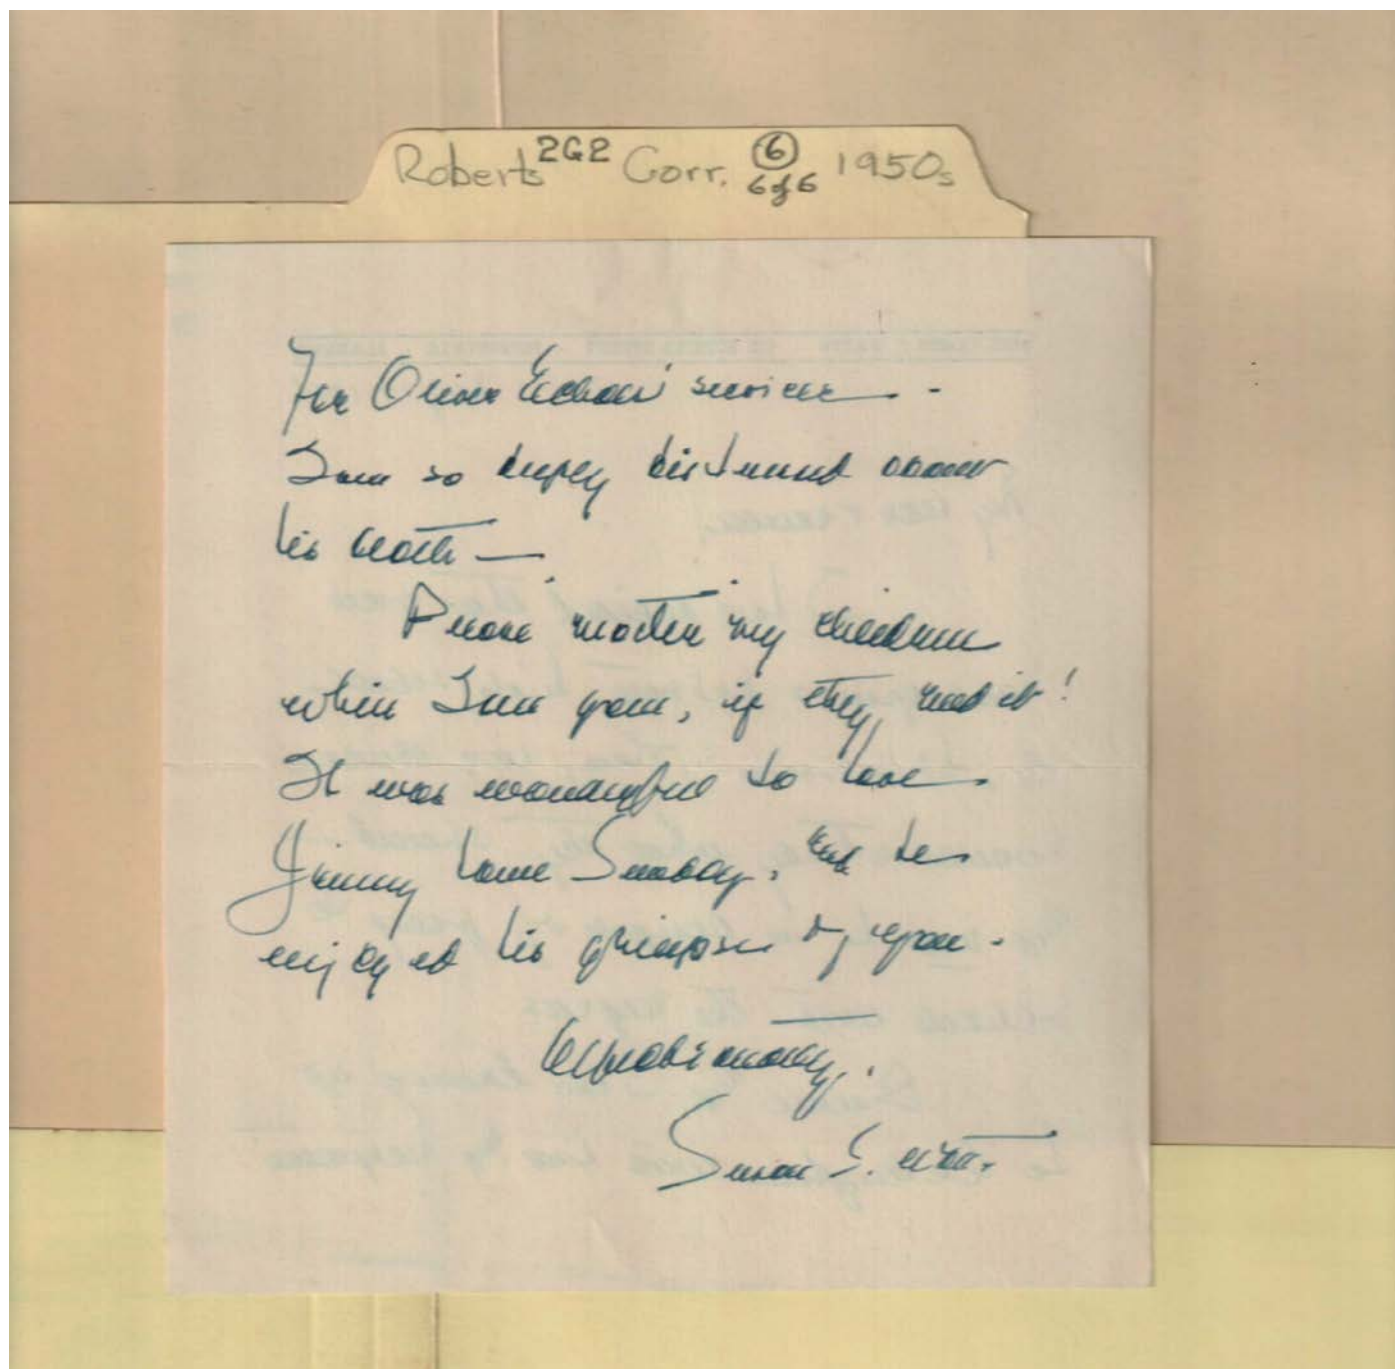 Roberts 2G2 Corr. 6 6 of 6 1950s
for Oliver services -
I am so deeply distressed about
his death —
Please mother my children
when I am gone, if they need it!
It was wonderful to have
Jimmy home Sunday, and he
enjoyed his glimpse of you.
Affectionately,
Susan S.